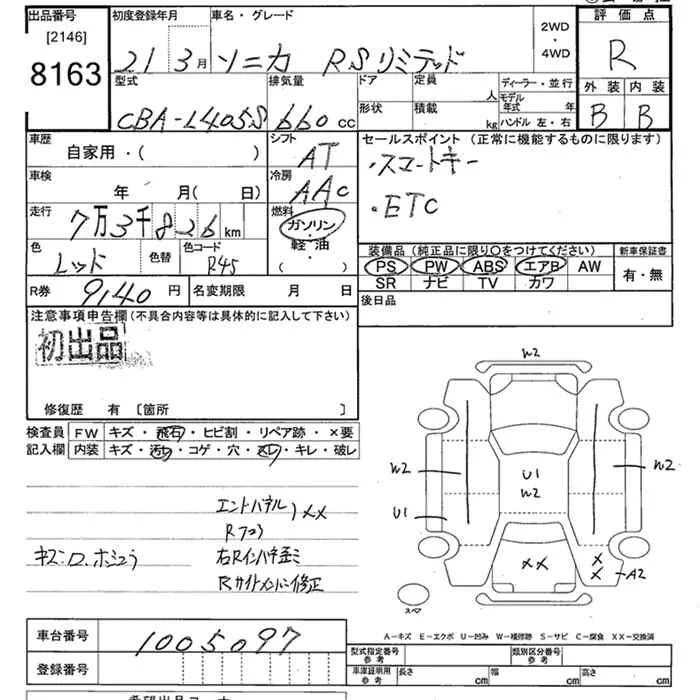 出品番号 初度登録年月 車名・グレード 2WD・4WD 評価点
[2146]
8163 21 3月 ソニカ RSリミテッド R
型式 排気量 ドア 定員 人 ディーラー・並行 外装 内装
CBA-L405S 660 cc 形状 積載 kg モデル年式 年 ハンドル 左・右 B B
車歴 自家用・( ) シフト AT セールスポイント(正常に機能するものに限ります)
車検 年 月( 日) 冷房 AAC ・スマートキー
走行 7万3千826km 燃料 ガソリン・軽・油・( ) ・ETC
色 レッド 色替 色コード R45 装備品(純正品に限り○をつけてください) 新車保証書
PS PW ABS エアB AW 有・無
SR ナビ TV カワ
R券 9,140円 名変期限 月 日 後日品
注意事項申告欄(不具合内容等は具体的に記入して下さい)
初出品
修復歴 有 〔箇所 〕
検査員 FW キズ・飛石・ヒビ割・リペア跡・×要
記入欄 内装 キズ・汚れ・コゲ・穴・スレ・キレ・破レ
W2
W2 U1 W2 W2
U1
エンドパネル
XX
キズ・
右Rインパネ歪ミ
Rサイドメンバー修正
XX X X A2
スペア
A-キズ E-エクボ U-凹み W-補修跡 S-サビ C-腐食 XX-交換済
車台番号 1005097
型式指定番号 参考 類別区分番号 参考
登録番号 車庫証明用 参考 長さ cm 幅 cm 高さ cm